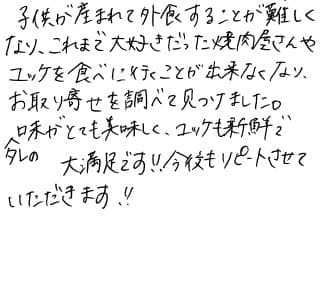 子供が産まれて外食することが難しく
なり、これまで大好きだった焼肉屋さんや
ユッケを食べに行くことが出来なくなり、
お取り寄せを調べて見つけました。
味がとても美味しく、ユッケも新鮮で
タレの
大満足です!!今後もリピートさせて
いただきます!!